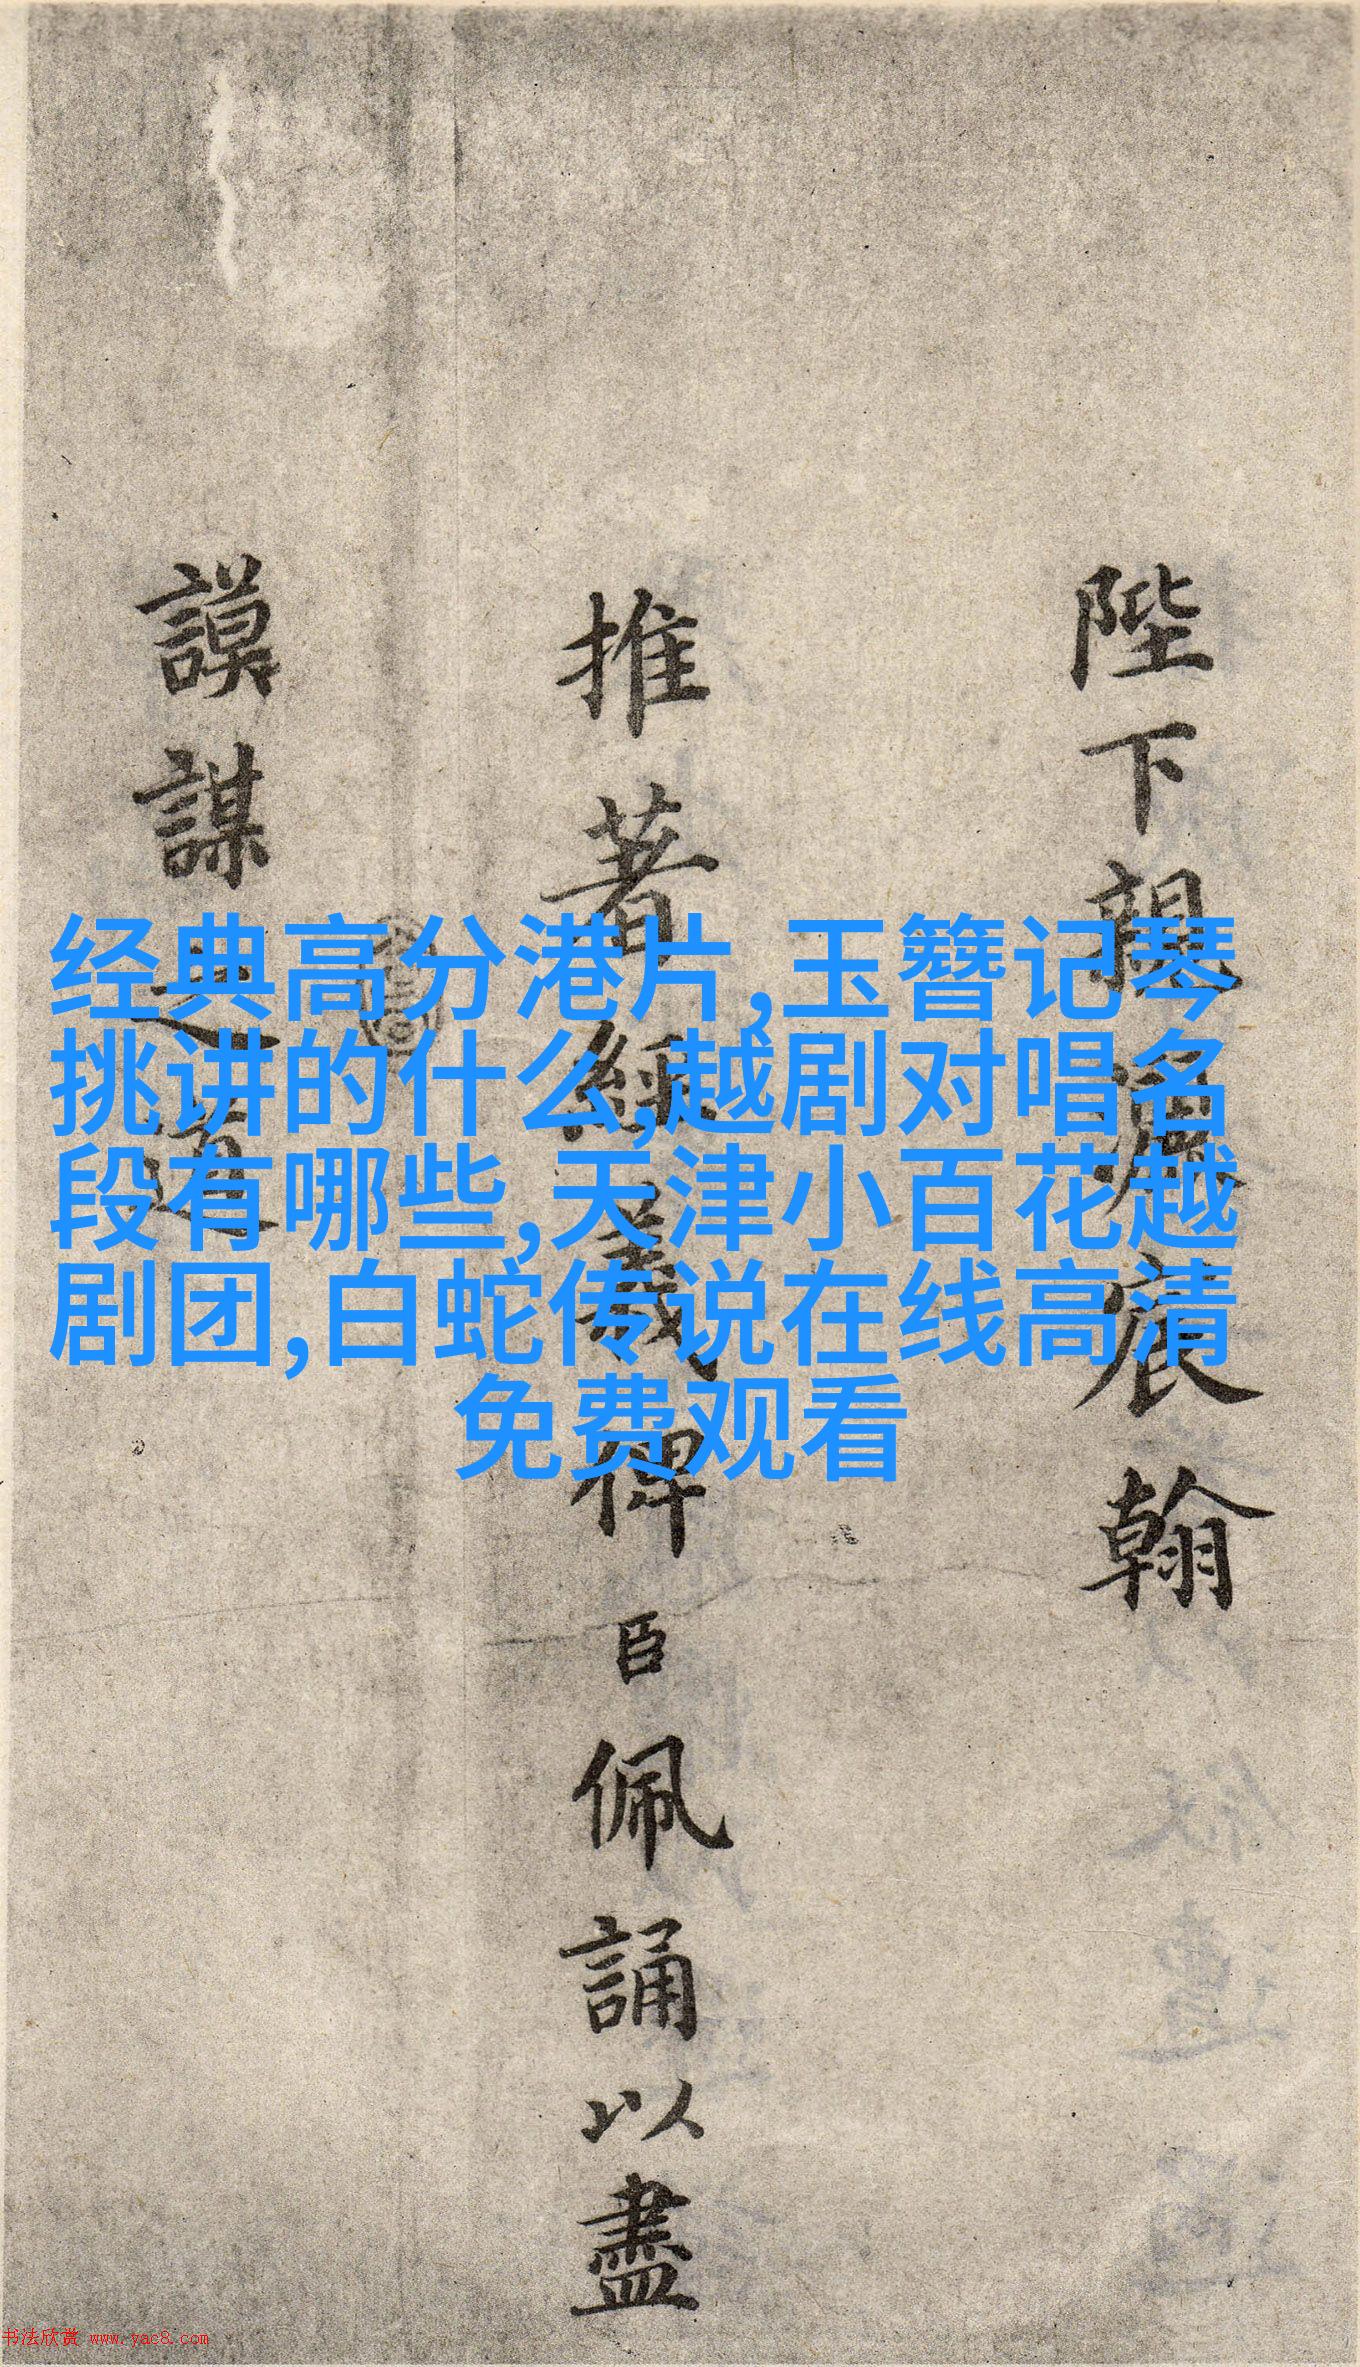 陛下親灑宸翰
推著經義俾臣佩誦以盡
謨謀之道
经典高分港片,玉簪记琴
挑讲的什么,越剧对唱名
段有哪些,天津小百花越
剧团,白蛇传说在线高清
免费观看
书法欣赏 www.yac8.com